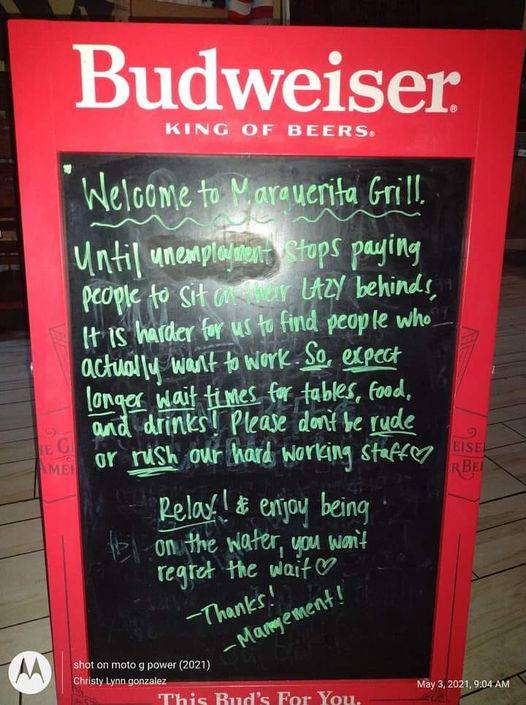 Budweiser®
KING OF BEERS®
Welcome to Marguerita Grill.
Until unemployment stops paying
people to sit on their LAZY behinds,
It is harder for us to find people who
actually want to work. So, expect
longer wait times for tables, food,
and drinks! Please don't be rude
or rush our hard working staff♡
Relax! & enjoy being
on the water, you won't
regret the wait♡
-Thanks!
-Mangement!
This Bud's For You.
shot on moto g power (2021)
Christy Lynn gonzalez
May 3, 2021, 9:04 AM